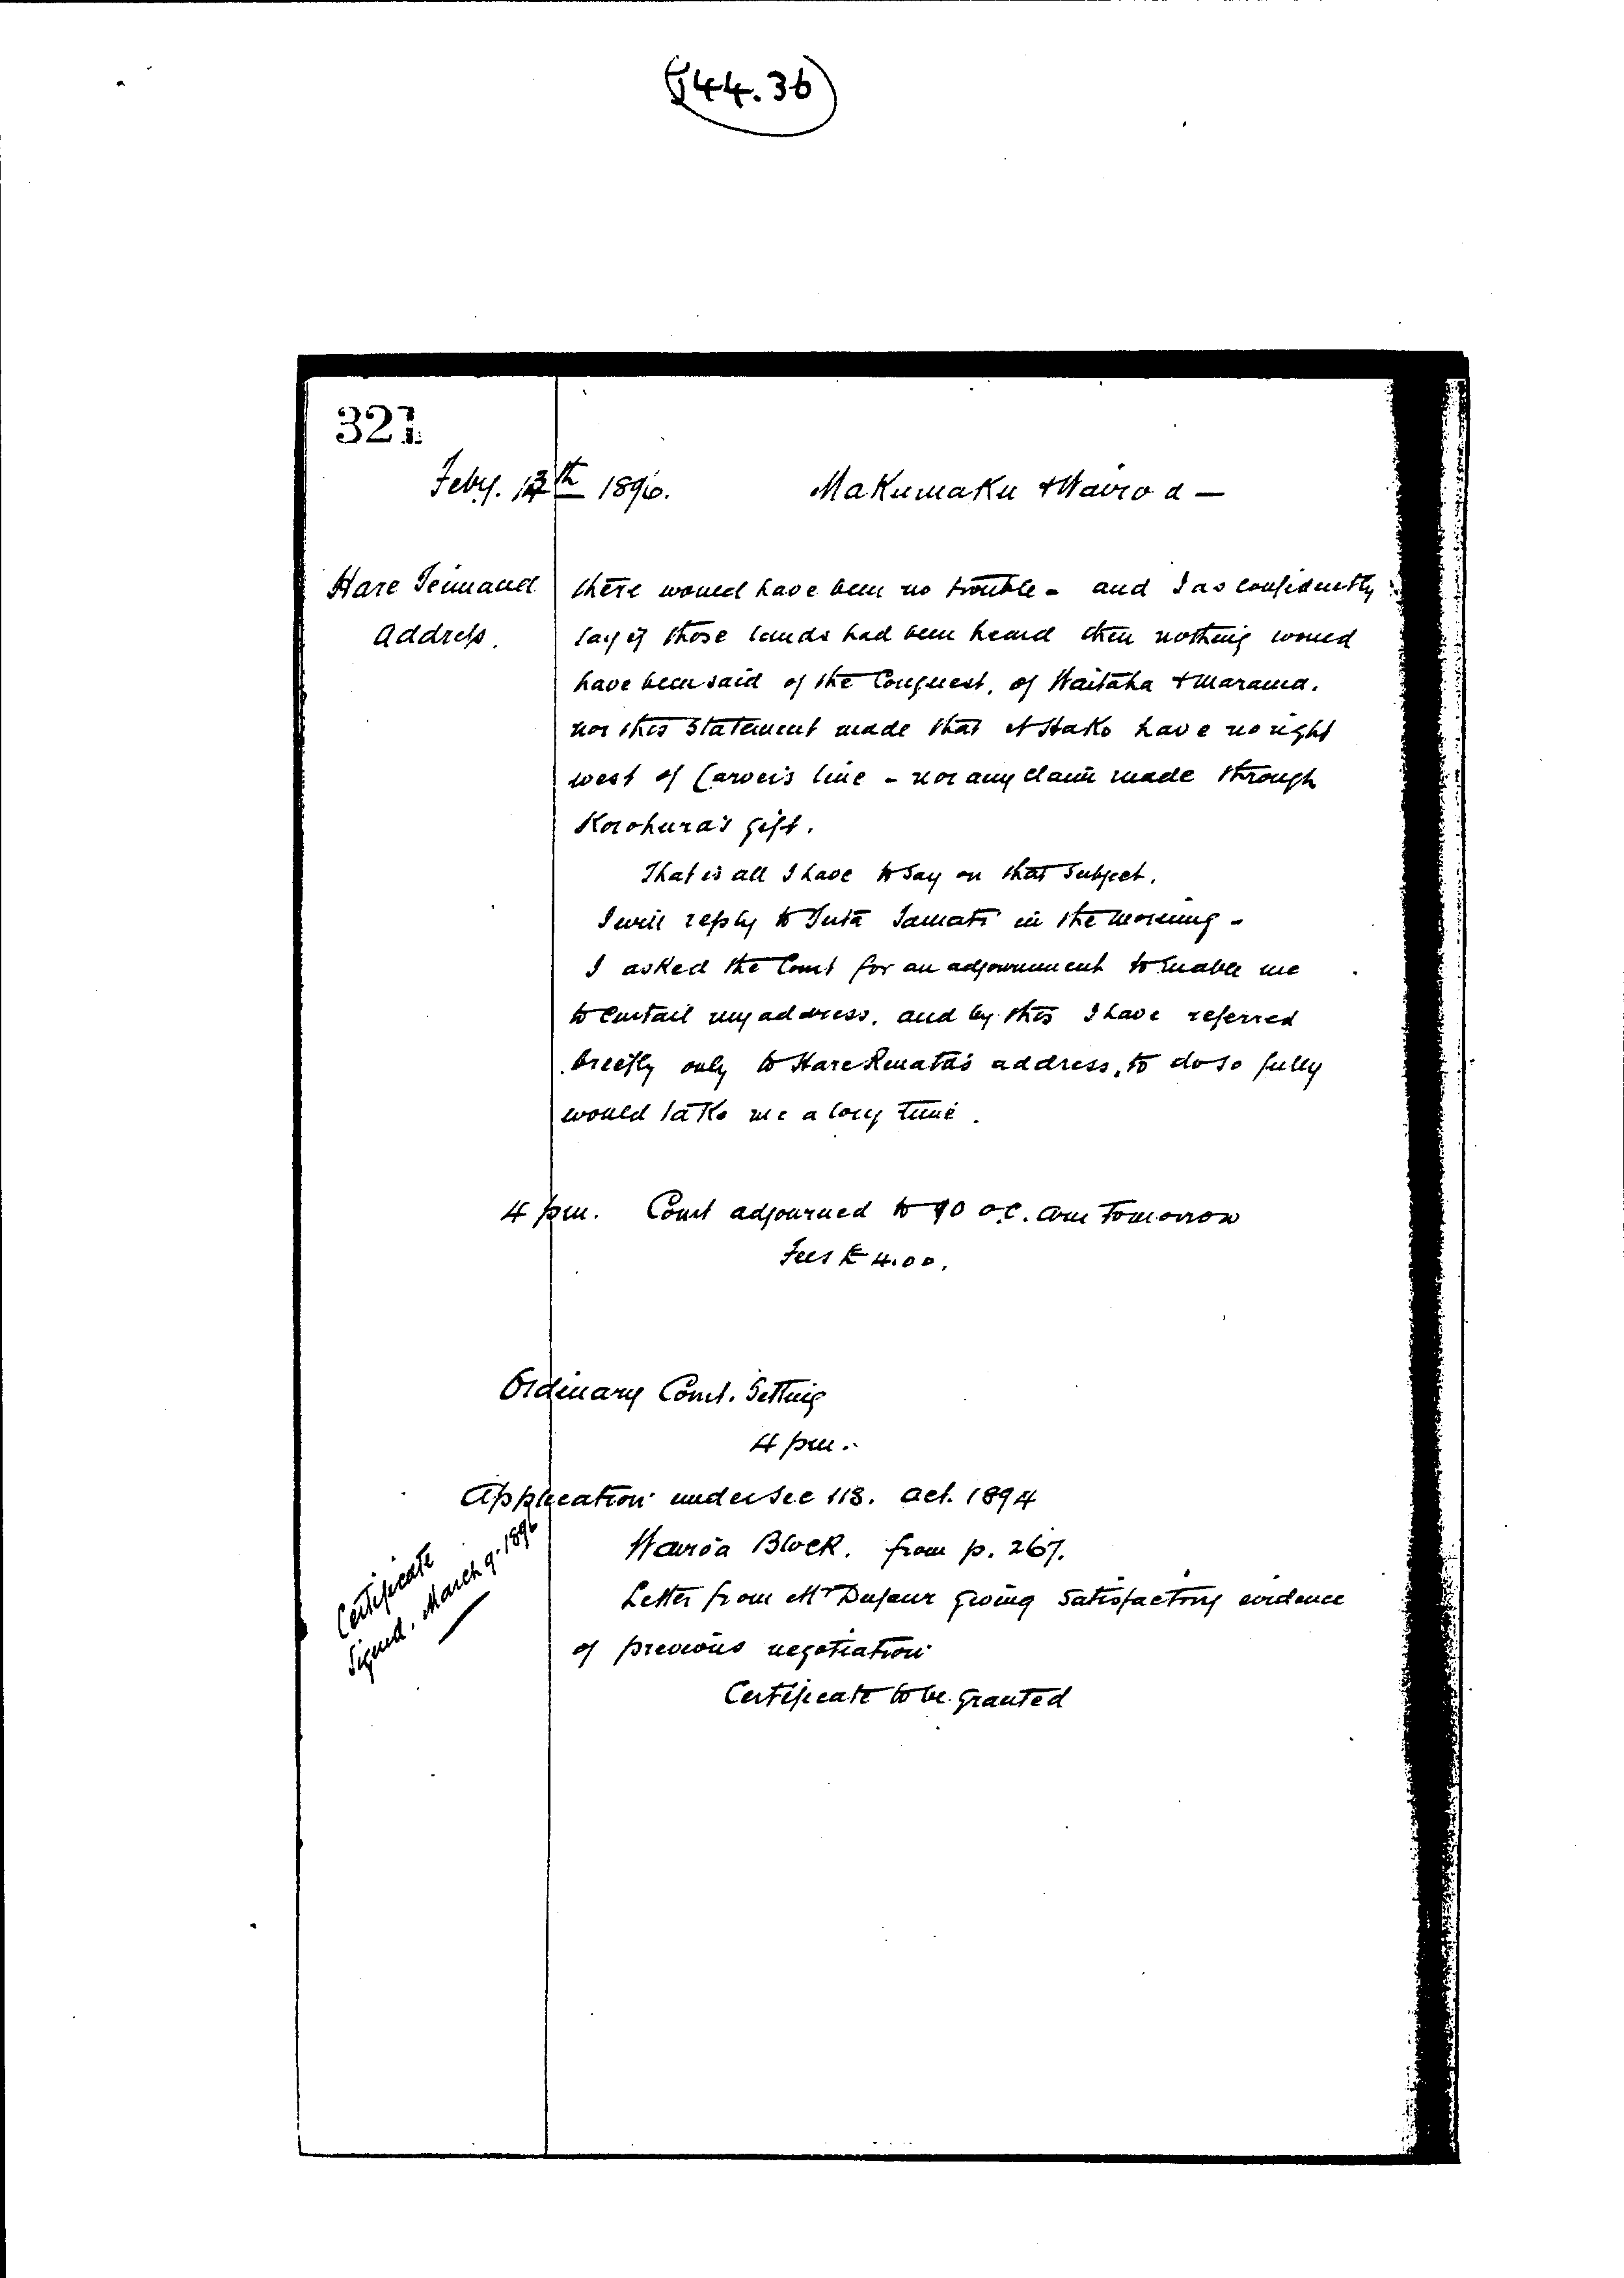 44.36
327.
Feby. 12th 1896. Makumaku & Wairoa —
Hare Teimana there would have been no trouble - and I as confidently
Address. say if those lands had been heard then nothing would
have been said of the Conquest, of Waitaha & Marama.
nor this Statement made that N Hako have no right
west of line - nor any claim made through
Korohura's gift.
That is all I have to say on that subject.
I will reply to Tuta Tamati in the morning -
I asked the Court for an adjournment to enable me
to Curtail my address, and by this I have referred
briefly only to Hare Renata's address, to do so fully
would take me a long time.
4 pm. Court adjourned to 10 o.c. am Tomorrow
Fees £ 4.0 0.
Ordinary Court. Sitting
4 pm.
Application under Sec 118. Act. 1894
Wairoa Block. from p. 267.
Letter from Mr Dufaur giving Satisfactory evidence
of previous negotiation
Certificate to be granted
Certificate
Signed. March 9. 1896